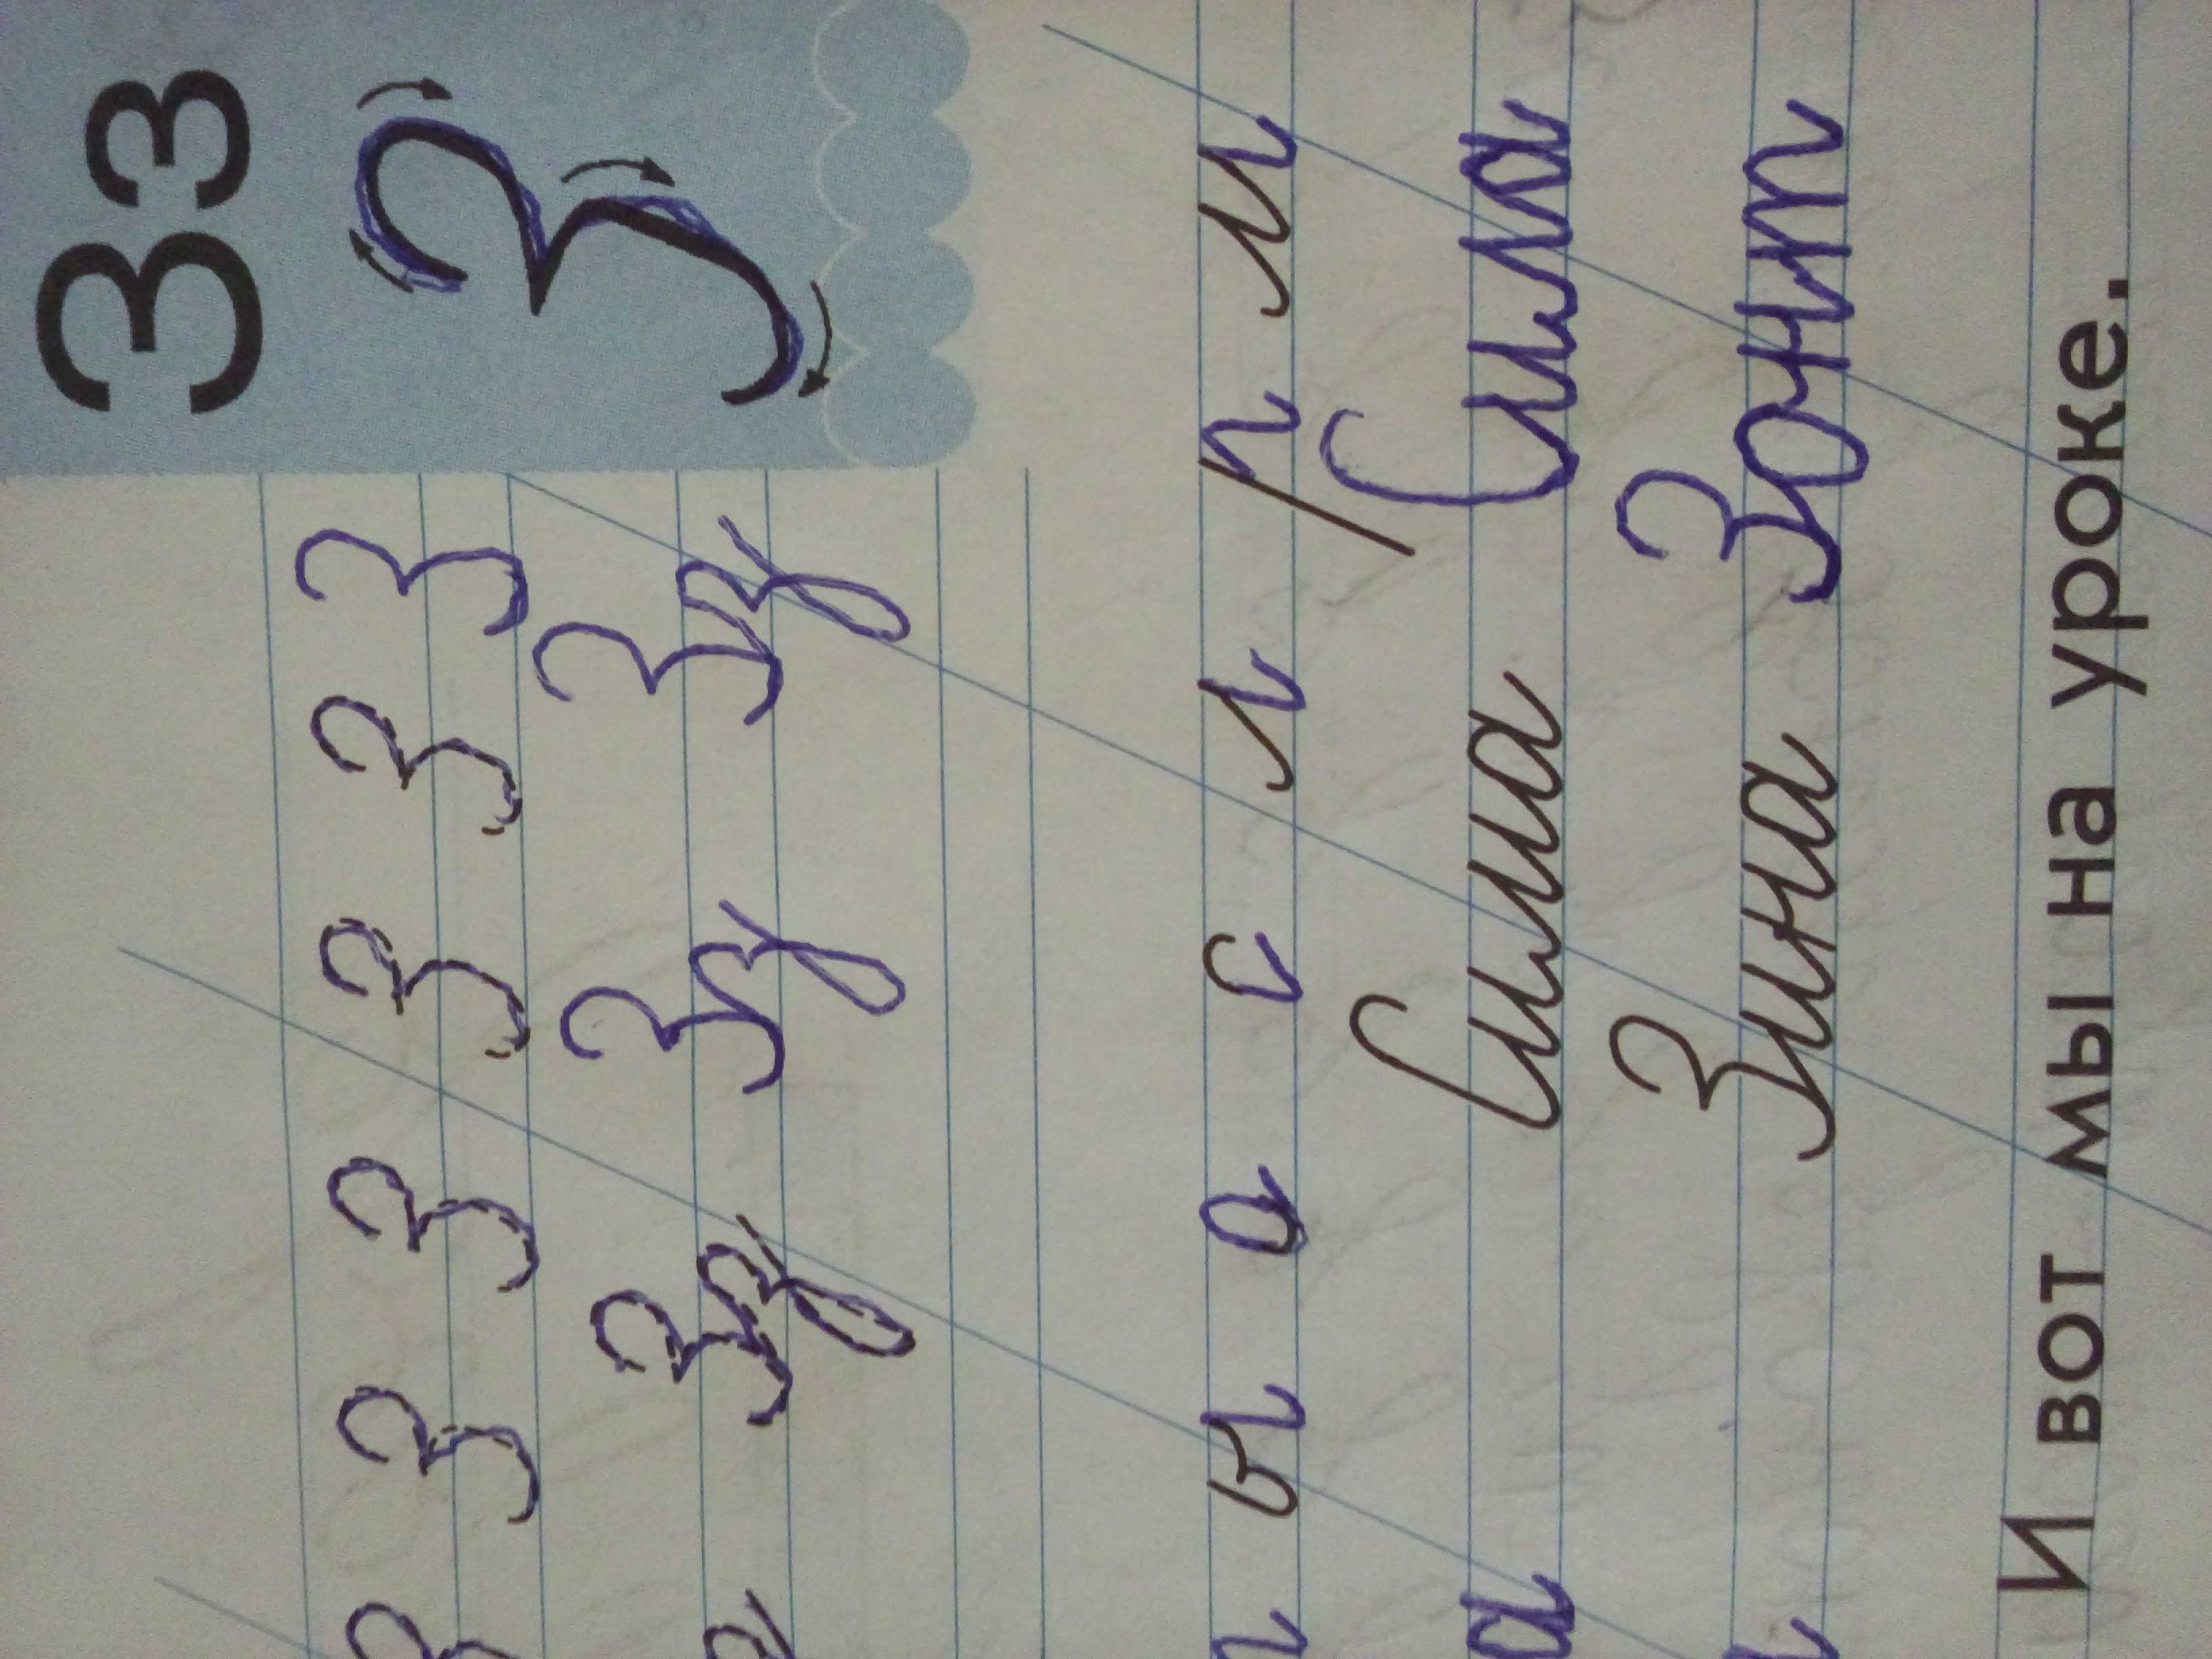 Зз
З
З З З З З З З
з Зз Зз Зз
ы о с л р м
а Сима Сима
Зина Зонт
И вот мы на уроке.